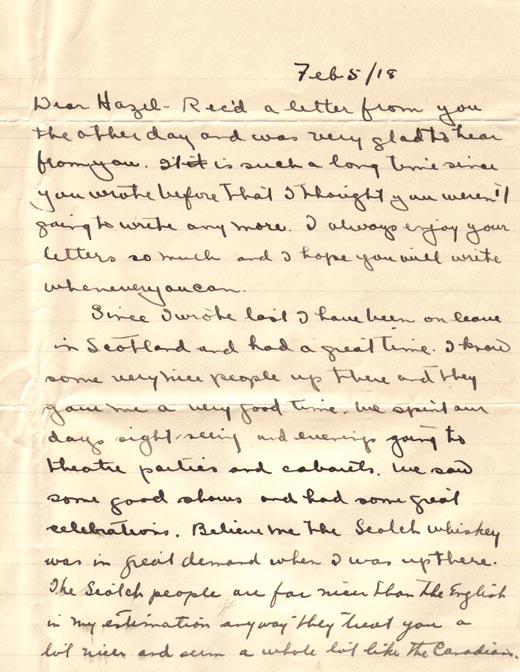 Feb 5/18
Dear Hazel - Rec'd a letter from you
the other day and was very glad to hear
from you. It is such a long time since
you wrote before that I thought you weren't
going to write any more. I always enjoy your
letters so much and I hope you will write
whenever you can.
Since I wrote last I have been on leave
in Scotland and had a great time. I know
some very nice people up there and they
gave me a very good time. We spent our
days sight-seeing and evenings going to
theatre parties and cabarets. We saw
some good shows and had some great
celebrations. Believe me the Scotch whiskey
was in great demand when I was up there.
The Scotch people are far nicer than the English
in my estimation anyway they treat you a
lot nicer and seem a whole lot like the Canadians.